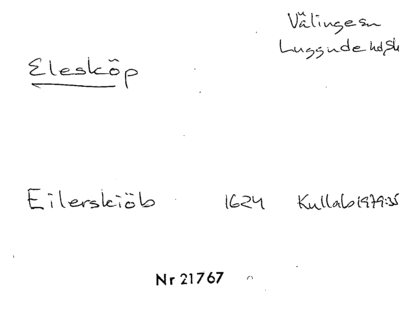 Välinge sn
Luggude hd, Sk
Elesköp
Eilerskiöb 1624 Kullab 1979:35
Nr 21767